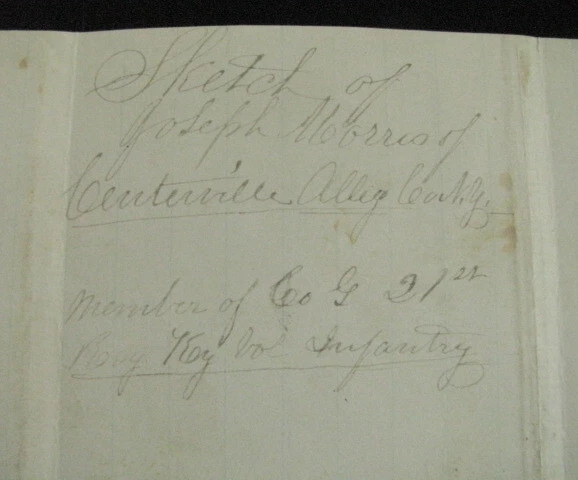 Sketch of
Joseph Morris of
Centerville Alleg Co N.Y.
member of Co G 21st
Reg Ky Vol Infantry